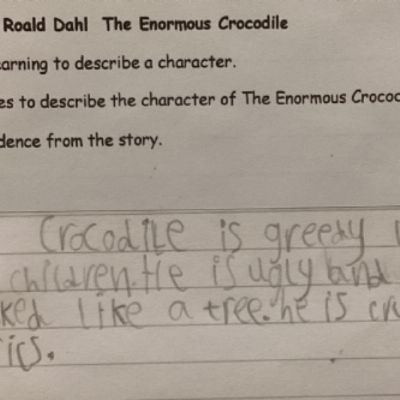 Roald Dahl The Enormous Crocodile
arning to describe a character.
es to describe the character of The Enormous Crococ
dence from the story.
Crocodile is greedy
children. He is ugly and
ked like a tree. he is cru
ics.